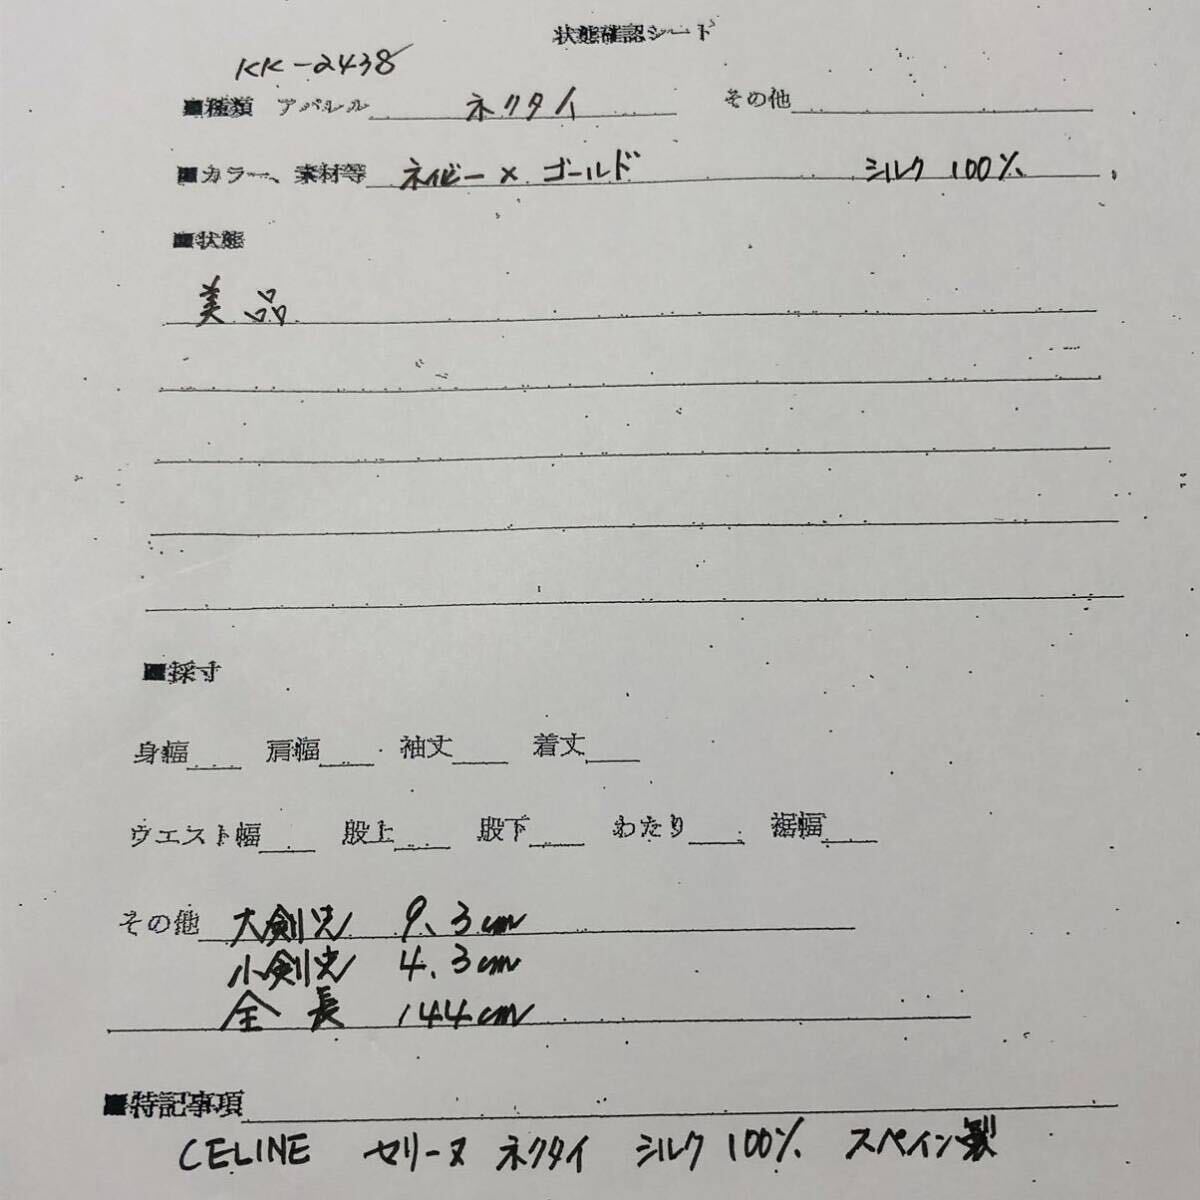 状態確認シート
KK-2438
■種類 アパレル ネクタイ その他
■カラー、素材等 ネイビー×ゴールド シルク 100%
■状態
美品
■採寸
身幅 肩幅 袖丈 着丈
ウエスト幅 股上 股下 わたり 裾幅
その他 大剣先 9.3cm
小剣先 4.3cm
全長 144cm
■特記事項
CELINE セリーヌ ネクタイ シルク 100% スペイン製